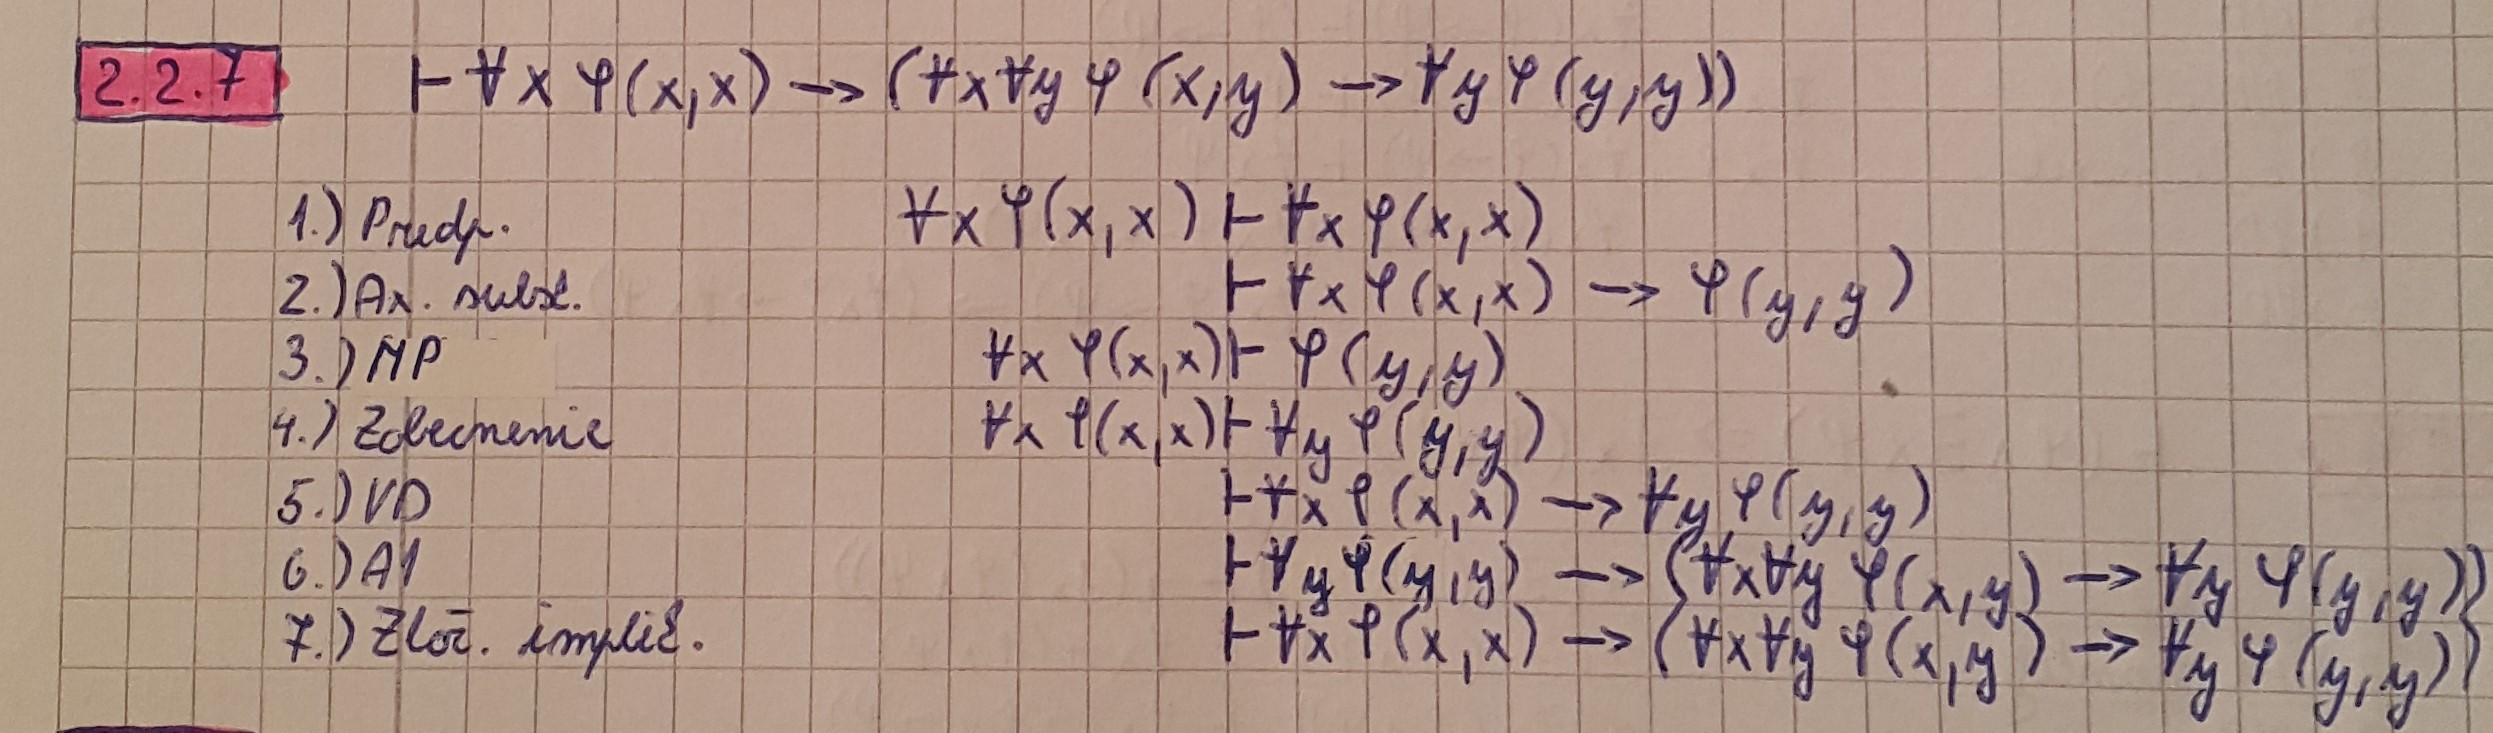 2.2.7 ⊢ ∀x φ(x,x) → (∀x∀y φ(x,y) → ∀y φ(y,y))
1.) Predp. ∀x φ(x,x) ⊢ ∀x φ(x,x)
2.) Ax. subst. ⊢ ∀x φ(x,x) → φ(y,y)
3.) MP ∀x φ(x,x) ⊢ φ(y,y)
4.) Zobecnenie ∀x φ(x,x) ⊢ ∀y φ(y,y)
5.) VD ⊢ ∀x φ(x,x) → ∀y φ(y,y)
6.) A1 ⊢ ∀y φ(y,y) → (∀x∀y φ(x,y) → ∀y φ(y,y))
7.) Zlož. implik. ⊢ ∀x φ(x,x) → (∀x∀y φ(x,y) → ∀y φ(y,y))